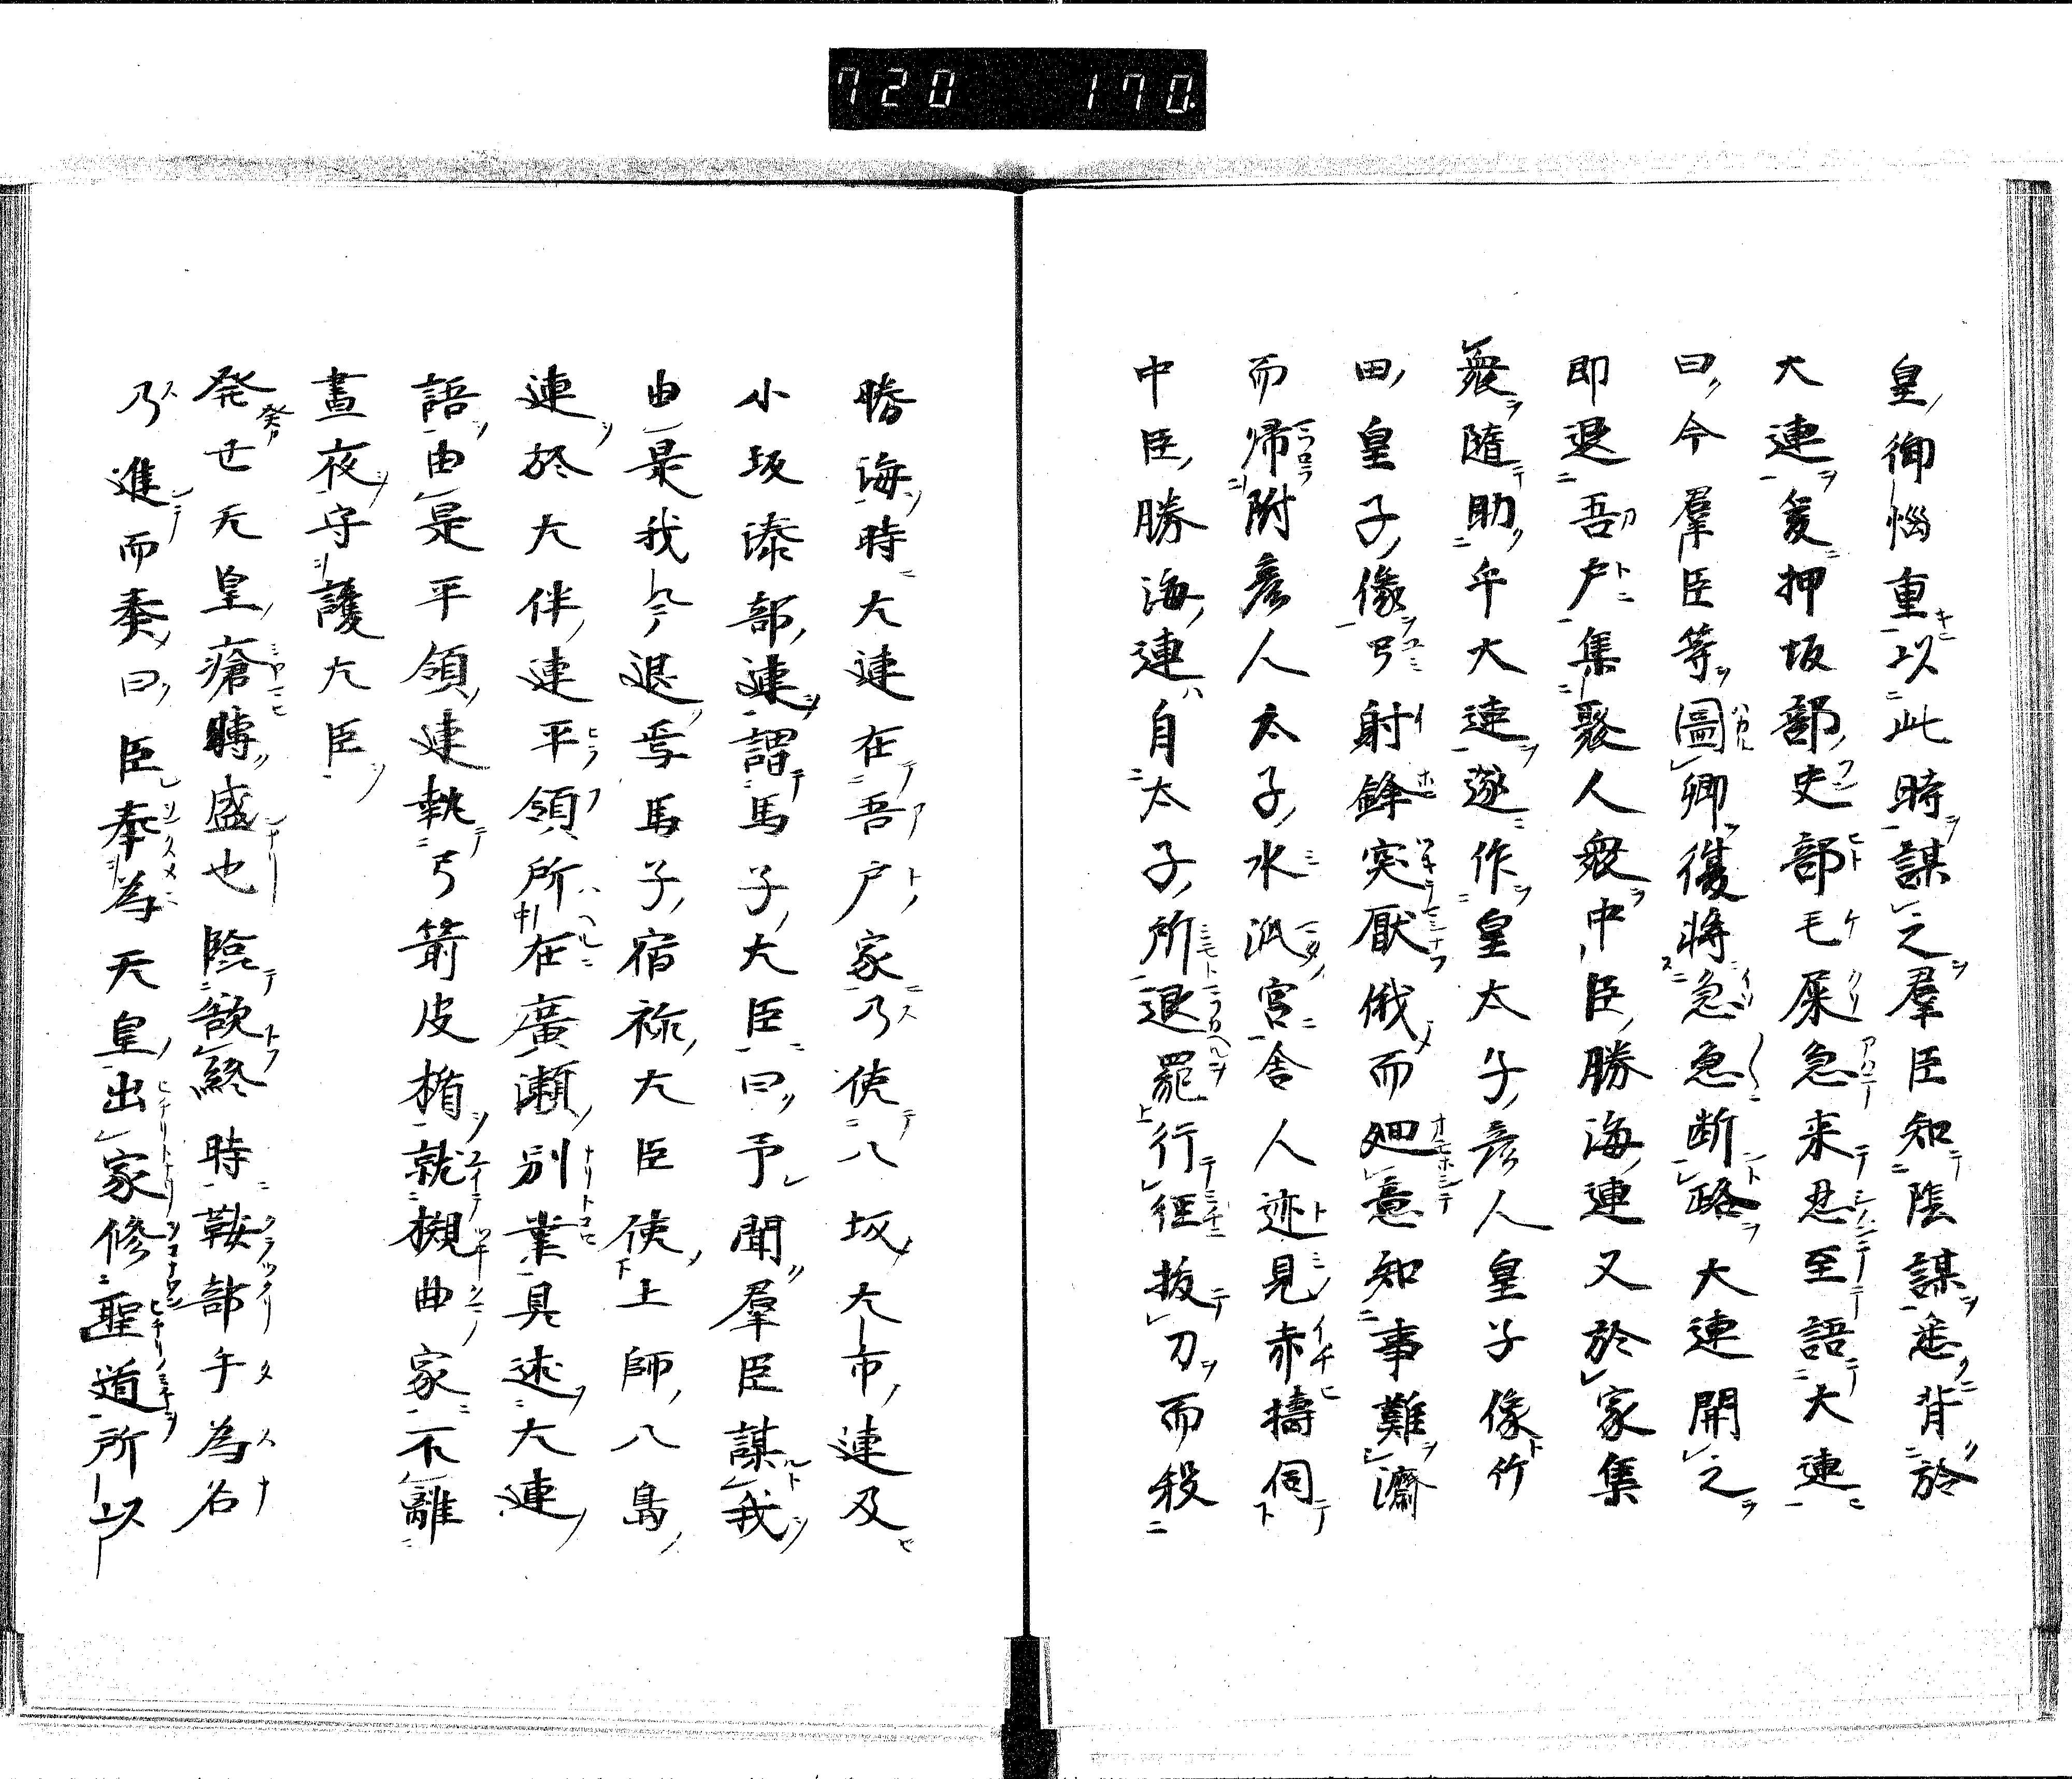 720 170
皇御悩重以此時謀之羣臣知陰謀悉背於
大連爰押坂部史部毛屎急来忍至語大連
曰今羣臣等圖卿復將急急断路大連開之
即退吾戸集聚人衆中臣勝海連又於家集
衆隨助乎大連遂作皇太子彦人皇子像竹
田皇子像弓射鋒突厭俄而廻意知事難濟
而帰附彦人太子水派宮舎人迹見赤擣伺
中臣勝海連自太子所退罷行径抜刀而殺
勝海時大連在吾戸家乃使八坂大市連及
小坂漆部連謂馬子大臣曰予聞羣臣謀我
由是我今退焉馬子宿祢大臣使土師八島
連於大伴連平領所在廣瀬別業具述大連
語由是平領連執弓箭皮楯就槻曲家不離
晝夜守護大臣
発世天皇瘡時盛也臨欲終時鞍部手為名
乃進而奏曰臣奉為天皇出家修聖道所以